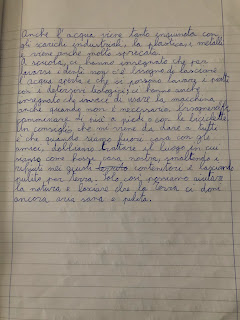 Anche l'acqua viene tanto inquinata con
gli scarichi industriali, la plastica, i metalli
e viene anche molto sprecata.
A scuola, ci hanno insegnato che per
lavarsi i denti non c'è bisogno di lasciare
l'acqua aperta e che si possono lavare i piatti
con e detersivi biologici; ci hanno anche
insegnato di evitare di usare la macchina
anche quando non è necessario, insegnando
camminare di più a piedi o con le biciclette.
Un consiglio che mi viene da dare a tutti
è che quando siamo fuori casa con gli
amici, dobbiamo trattare il luogo in cui
siamo come fosse casa nostra, smaltendo i
rifiuti nei giusti contenitori e lasciando
pulito per terra. Solo così possiamo aiutare
la natura e lasciare che la terra ci doni
ancora aria sana e pulita.